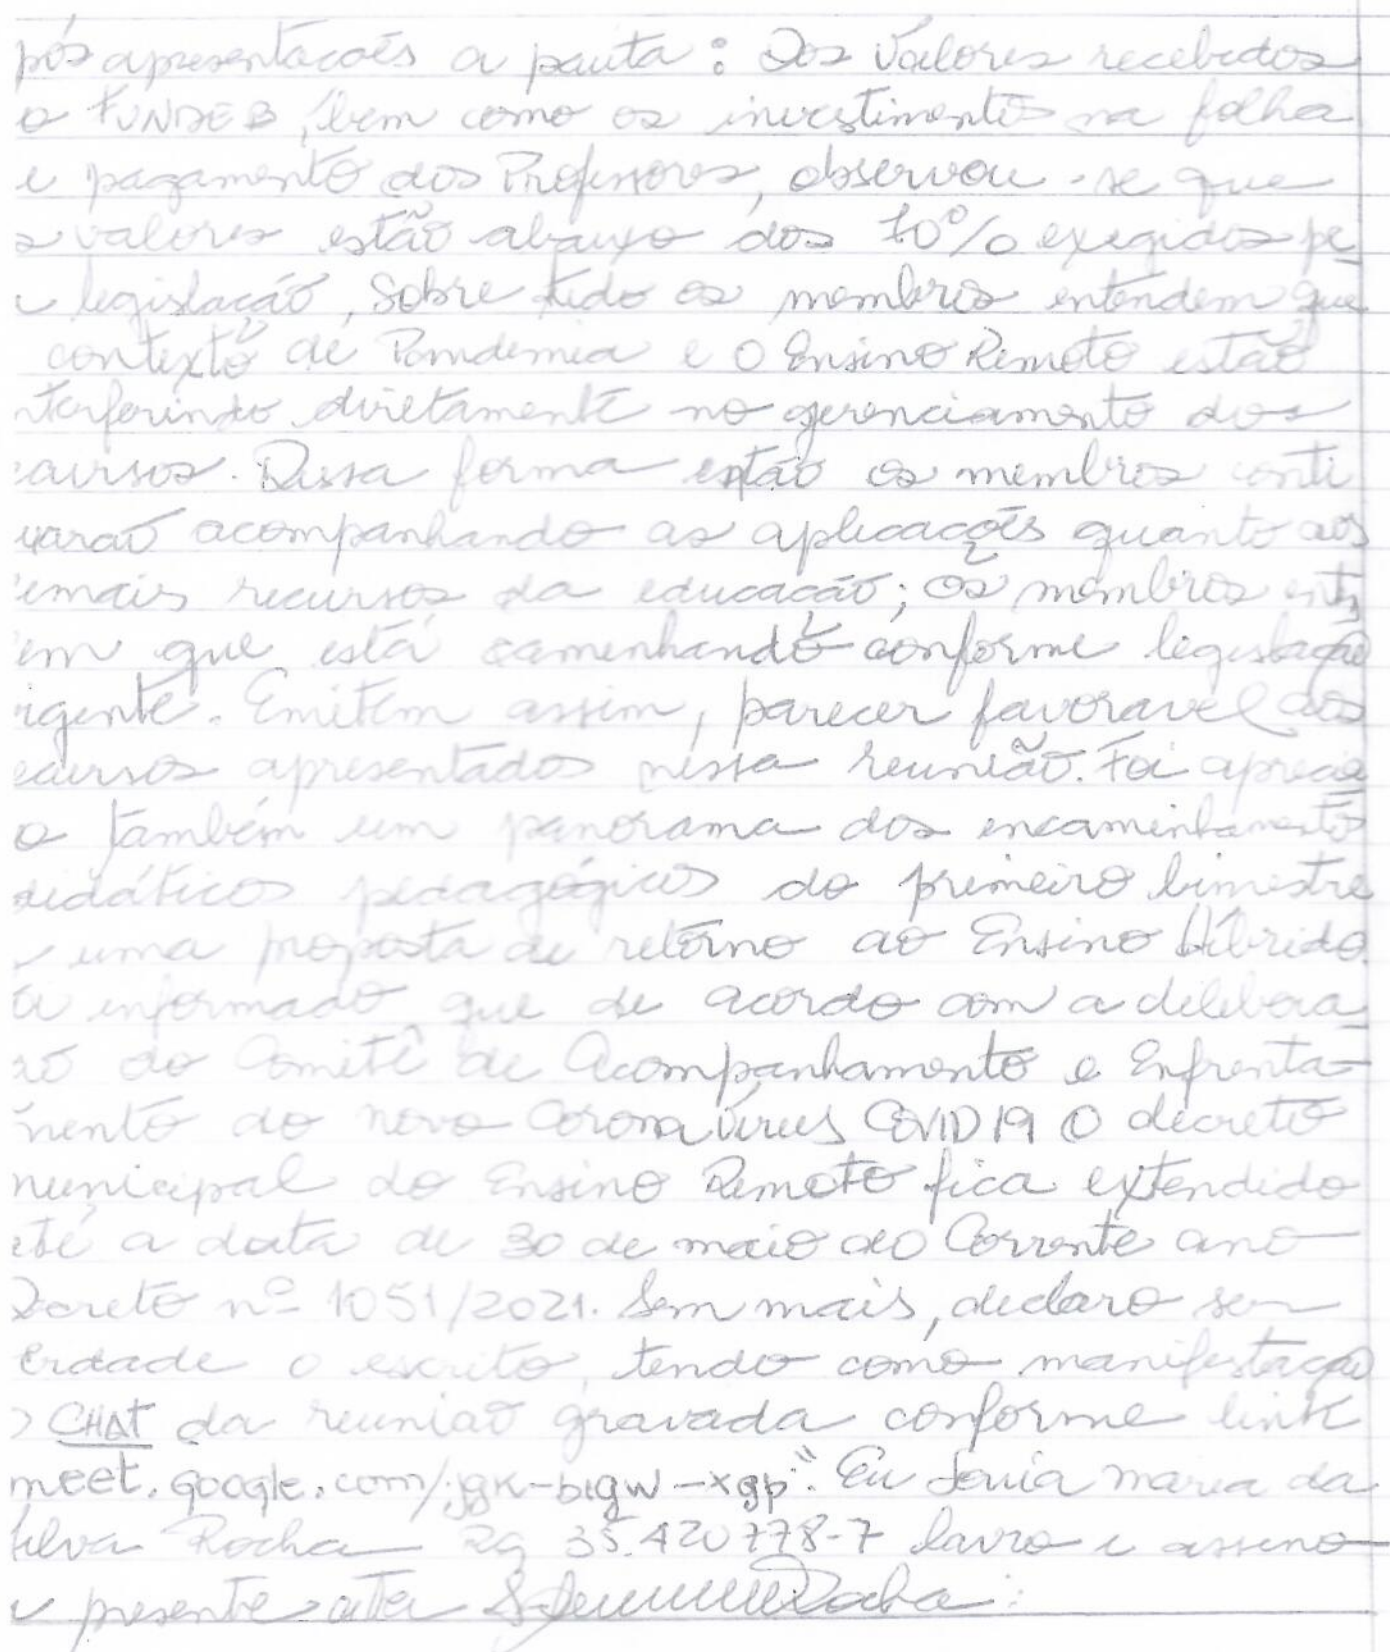 pós apresentacoēs a pauta: Dos Valores recebidos
o FUNDEB, bem como os investimentos na folha
e pagamento dos Professores, observou-se que
s valores estão abaixo dos 70% exegidos pe
a legislação, Sobre tudo os membros entendem que
contexto de Pandemia e o Ensino Remoto estão
nterferindo diretamente no gerenciamento dos
cursos. Dessa forma então os membros conti
uarão acompanhando as aplicações quanto aos
emais recursos da educação; os membros enten
em que está caminhando conforme legislação
igente. Emitem assim, parecer favoravel aos
ecursos apresentados nessa reunião. Foi aprecia
o também um panorama dos encaminhamentos
didáticos pedagógicos do primeiro bimestre
e uma proposta de retorno ao Ensino Híbrido.
oi informado que de acordo com a delibera
ão do Comitê de Acompanhamento e Enfrenta-
mento do novo Corona Vírus COVID 19 O decreto
municipal do Ensino Remoto fica extendido
até a data de 30 de maio do Corrente ano
Decreto nº 1051/2021. Sem mais, declaro ser
erdade o escrito, tendo como manifestação
o CHAT da reunião gravada conforme link
meet.google.com/jgk-bigw-xgp." Eu Sonia maria da
Silva Rocha Rg 35.420778-7 lavro e assino
a presente ata Rocha.